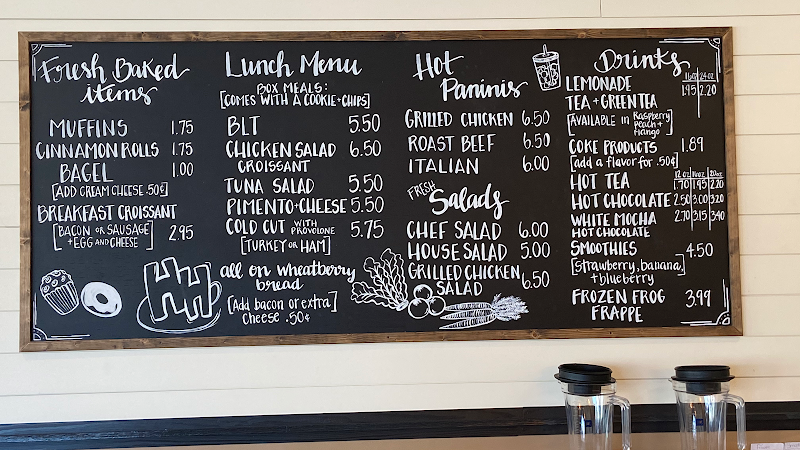 Fresh Baked
items
MUFFINS 1.75
CINNAMON ROLLS 1.75
BAGEL 1.00
[ADD CREAM CHEESE .50¢]
BREAKFAST CROISSANT
[BACON OR SAUSAGE
+EGG AND CHEESE] 2.95
HH
Lunch Menu
BOX MEALS:
[COMES WITH A COOKIE+CHIPS]
BLT 5.50
CHICKEN SALAD 6.50
CROISSANT
TUNA SALAD 5.50
PIMENTO+CHEESE 5.50
COLD CUT WITH PROVOLONE 5.75
[TURKEY OR HAM]
all on wheatberry
bread
[Add bacon or extra]
cheese .50¢
Hot
Paninis
GRILLED CHICKEN 6.50
ROAST BEEF 6.50
ITALIAN 6.00
FRESH Salads
CHEF SALAD 6.00
HOUSE SALAD 5.00
GRILLED CHICKEN
SALAD 6.50
Drinks
16oz 24oz
LEMONADE 1.95 2.20
TEA+GREEN TEA
[AVAILABLE IN Raspberry
peach+
mango]
COKE PRODUCTS 1.89
[add a flavor for .50¢]
12oz 16oz 20oz
HOT TEA 1.70 1.95 2.20
HOT CHOCOLATE 2.50 3.00 3.20
WHITE MOCHA 2.70 3.15 3.40
HOT CHOCOLATE
SMOOTHIES 4.50
[Strawberry, banana,
+blueberry]
FROZEN FROG 3.99
FRAPPE